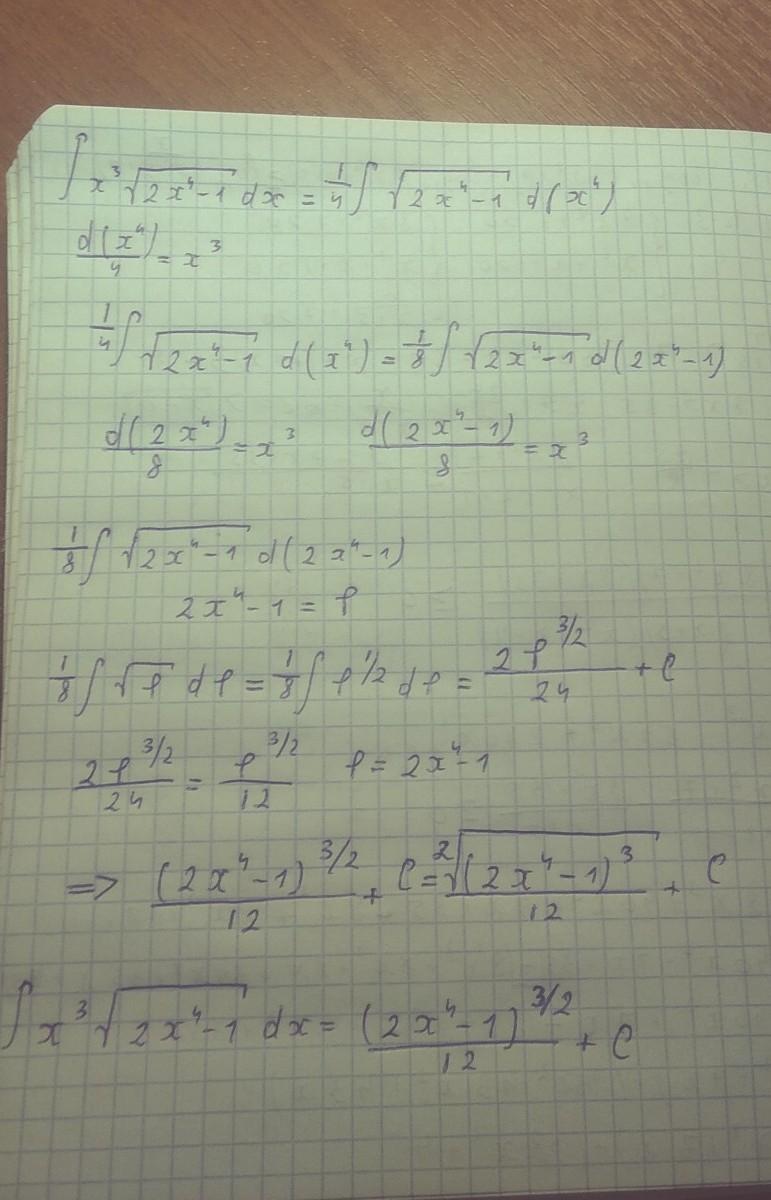 ∫ x³ √(2x⁴-1) dx = 1/4 ∫ √(2x⁴-1) d(x⁴)
d(x⁴)/4 = x³
1/4 ∫ √(2x⁴-1) d(x⁴) = 1/8 ∫ √(2x⁴-1) d(2x⁴-1)
d(2x⁴)/8 = x³ d(2x⁴-1)/8 = x³
1/8 ∫ √(2x⁴-1) d(2x⁴-1)
2x⁴-1 = p
1/8 ∫ √p dp = 1/8 ∫ p^1/2 dp = 2p^3/2/24 + C
2p^3/2/24 = p^3/2/12 p = 2x⁴-1
=> (2x⁴-1)^3/2/12 + C = ²√((2x⁴-1)³)/12 + C
∫ x³ √(2x⁴-1) dx = (2x⁴-1)^3/2/12 + C